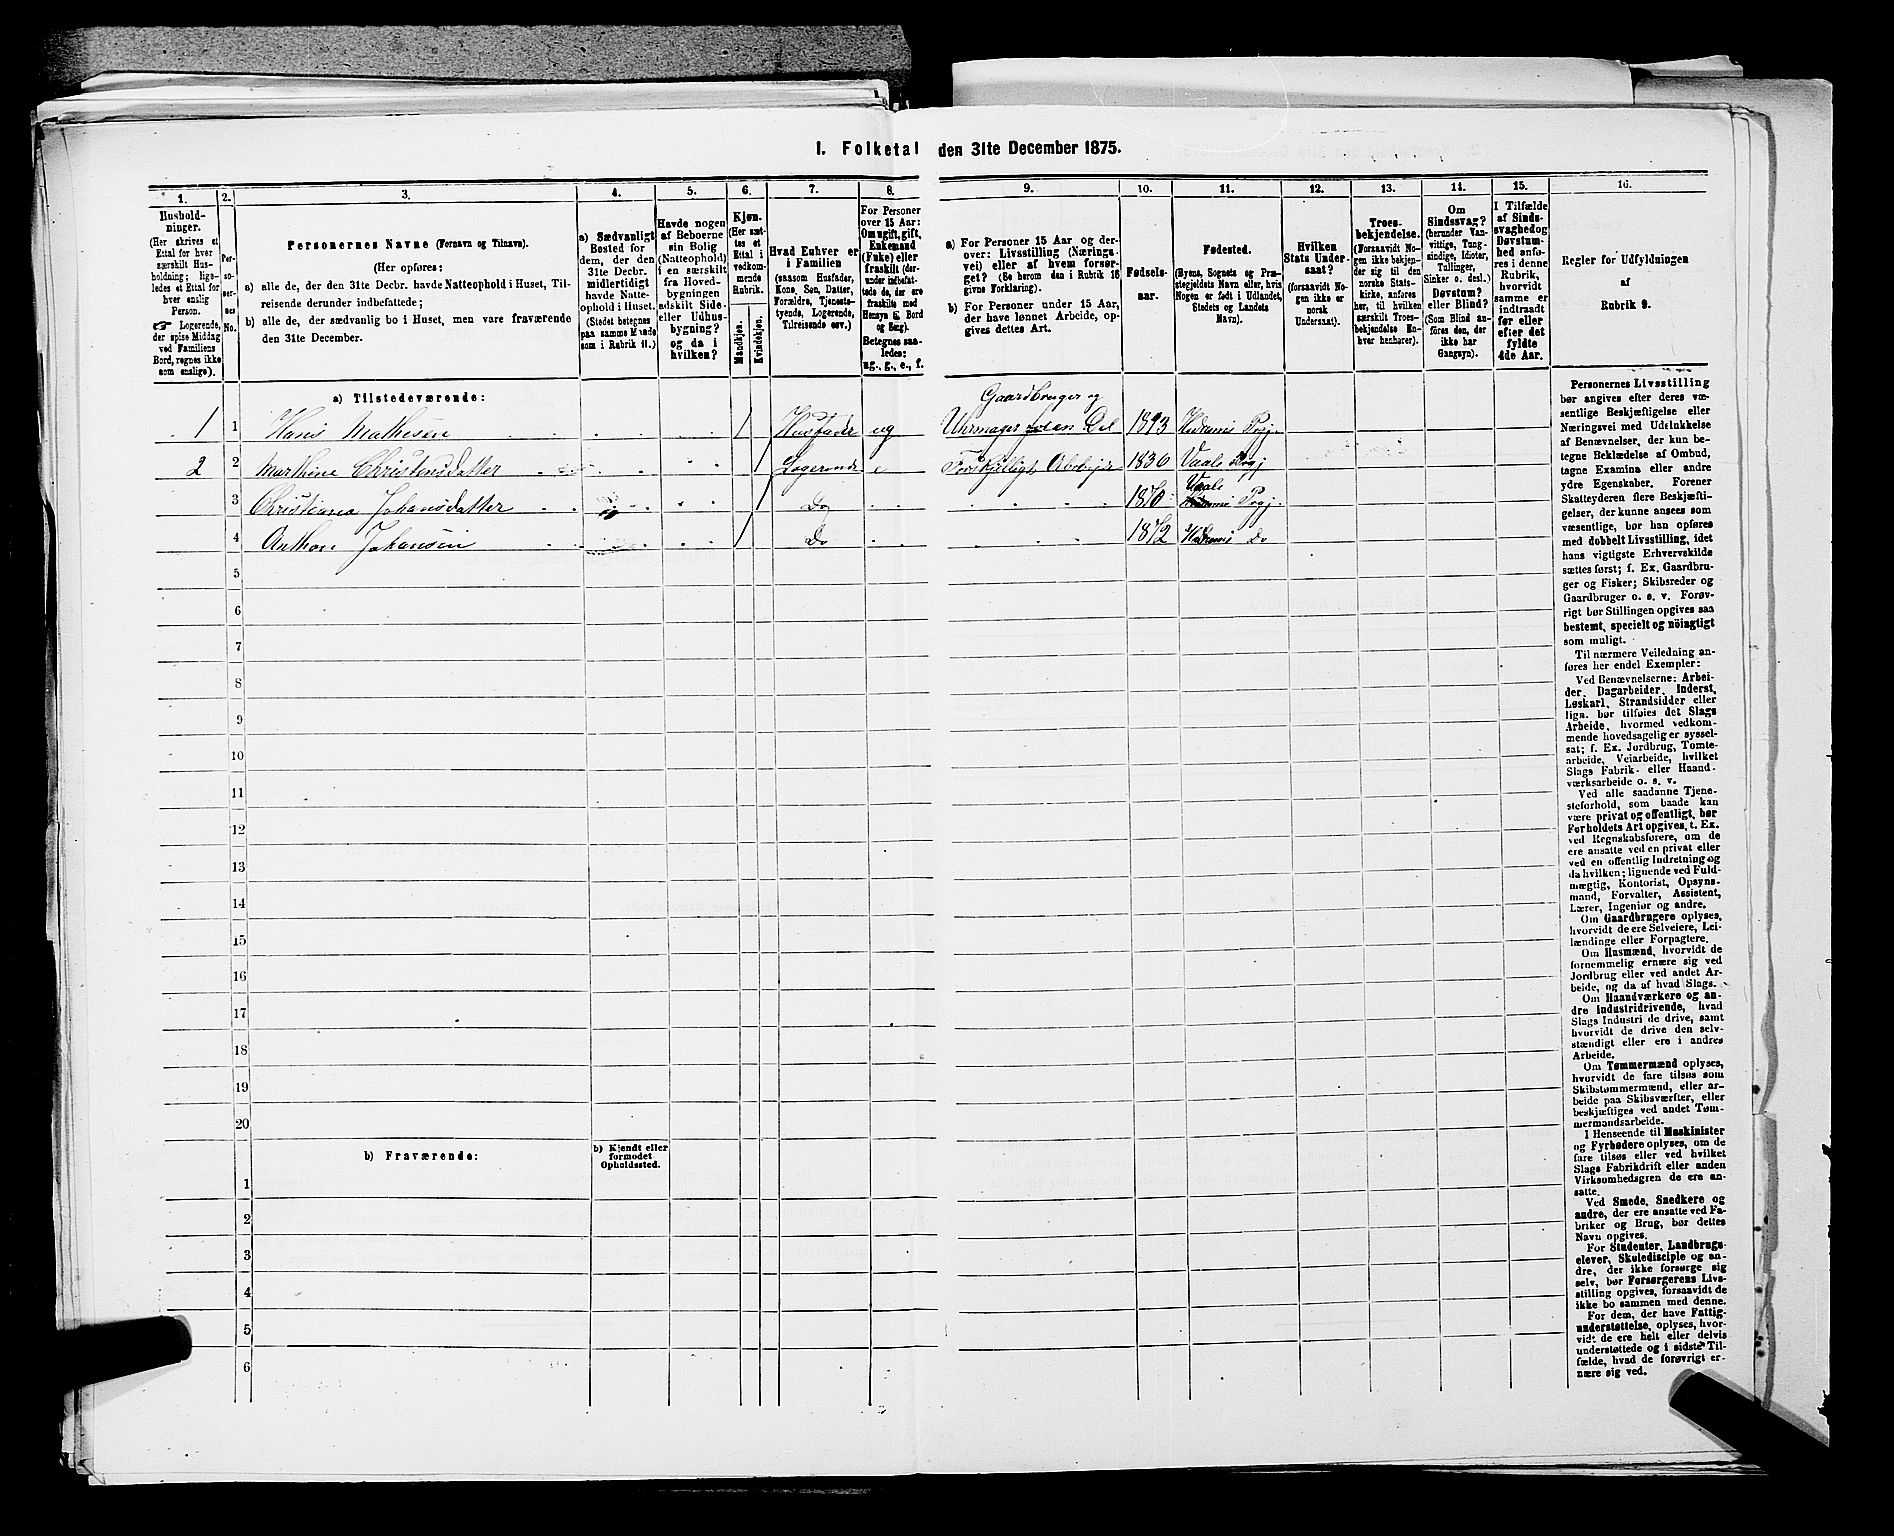 1. Folketal den 31te December 1875.
1. 2. 3. 4. 5. 6. 7. 8. 9. 10. 11. 12. 13. 14. 15. 16.
Hushold-
ninger.
(Her skrives et
Ettal for hver
særskilt Hus-
holdning; lige-
ledes et Ettal for
hver enslig
Person.
☞ Logerende,
der spise Middag
ved Familiens
Bord, regnes ikke
som enslige).
Per-
so-
ner-
nes
No.
Personernes Navne (Fornavn og Tilnavn).
(Her opføres:
a) alle de, der den 31te Decbr. havde Natteophold i Huset, Til-
reisende derunder indbefattede;
b) alle de, der sædvanlig bo i Huset, men vare fraværende
den 31te December.
a) Sædvanligt
Bosted for
dem, der den
31te Decbr.
midlertidigt
havde Natte-
ophold i Huset.
(Stedet betegnes
paa samme Maade
som i Rubrik 11.)
Havde nogen
af Beboerne
sin Bolig
(Natteophold)
i en særskilt
fra Hoved-
bygningen
adskilt Side-
eller Udhus-
bygning?
og da i
hvilken?
Kjøn.
(Her sæt-
tes et
Ettal i
vedkom-
mende
Rubrik.
Mandkjøn.
Kvindekjøn.
Hvad Enhver er
i Familien
(saasom Husfader,
Kone, Søn, Datter,
Forældre, Tjeneste-
tyende, Logerende,
Tilreisende osv.)
For Personer
over 15 Aar:
Om ugift, gift,
Enkemand
(Enke) eller
fraskilt (der-
under indbefat-
tede de, der ere
fraskilte med
Hensyn til Bord
og Seng).
Betegnes saa-
ledes:
ug., g., e., f.
a) For Personer 15 Aar og der-
over: Livsstilling (Nærings-
vei) eller af hvem forsør-
get? (Se herom den i Rubrik 16
givne Forklaring).
b) For Personer under 15 Aar,
der have lønnet Arbeide, op-
gives dettes Art.
Fødsels-
aar.
Fødested.
(Byens, Sognets og Præ-
stegjeldets Navn eller, hvis
Nogen er født i Udlandet,
Stedets og Landets
Navn).
Hvilken
Stats Under-
saat?
(forsaavidt No-
gen ikke er
norsk
Undersaat).
Troes-
bekjendelse.
(Forsaavidt No-
gen ikke bekjen-
der sig til den
norske Stats-
kirke, anføres
her, til hvilken
særskilt Troes-
bekjendelse En-
hver henhører).
Om
Sindssvag?
(herunder Van-
vittige, Tung-
sindige, Idioter,
Tullinger,
Sinker o. desl.)
Døvstum?
eller Blind?
(Som Blind an-
føres den, der
ikke har
Gangsyn).
I Tilfælde
af Sinds-
svaghed og
Døvstum-
hed anfø-
res i denne
Rubrik,
hvorvidt
samme er
indtraadt
før eller
efter det
fyldte
4de Aar.
Regler for Udfyldningen
af
Rubrik 9.
a) Tilstedeværende:
Gaardbruger og
1 1 Hans Mathesen 1 Husfader ug Uhrmager for en Del 1893 Hedrums Prgj.
2 2 Marthine Christensdatter 1 Logerende e Forskjelligt Arbejde 1830 Vaale Prgj
Vaale
3 Christiana Johansdatter 1 Do 1870 Prgj.
4 Anthon Johansen 1 Do 1872 Hedrums Do
5
6
7
8
9
10
11
12
13
14
15
16
17
18
19
20
b) Fraværende:
b) Kjendt eller
formodet
Opholdssted.
1
2
3
4
5
6
Personernes Livsstilling
bør angives efter deres væ-
sentlige Beskjæftigelse eller
Næringsvei med Udelukkelse
af Benævnelser, der kun be-
tegne Beklædelse af Ombud,
tagne Examina eller andre
ydre Egenskaber. Forener
Skatteyderen flere Beskjæfti-
gelser, der kunne ansees som
væsentlige, bør han opføres
med dobbelt Livsstilling, idet
hans vigtigste Erhvervskilde
sættes først; f. Ex. Gaardbru-
ger og Fisker; Skibsreder og
Gaardbruger o. s. v. Forøv-
rigt bør Stillingen opgives saa
bestemt, specielt og nöiagtigt
som muligt.
Til nærmere Veiledning an-
føres her endel Exempler:
Ved Benævnelserne: Arbei-
der, Dagarbeider, Inderst,
Løskarl, Strandsidder eller
lign. bør tilføies det Slags
Arbeide, hvormed vedkom-
mende hovedsagelig er syssel-
sat; f. Ex. Jordbrug, Tomte-
arbeide, Veiarbeide, hvilket
Slags Fabrik- eller Haand-
værksarbeide o. s. v.
Ved alle saadanne Tjene-
steforhold, som baade kan
være privat og offentligt, bør
Forholdets Art opgives, t. Ex.
ved Regnskabsførere, om de
ere ansatte ved en privat eller
ved en offentlig Indretning og
da hvilken; lignende ved Fuld-
mægtig, Kontorist, Opsyns-
mand, Forvalter, Assistent,
Lærer, Ingeniør og andre.
Om Gaardbrugere oplyses,
hvorvidt de ere Selveiere, Lei-
lændinge eller Forpagtere.
Om Husmænd, hvorvidt de
fornemmelig ernære sig ved
Jordbrug eller ved andet Ar-
beide, og da af hvad Slags.
Om Haandværkere og an-
dre Industridrivende, hvad
Slags Industri de drive, samt
hvorvidt de drive den selv-
stændigt eller ere i andres
Arbeide.
Om Tømmermænd oplyses,
hvorvidt de fare tilsøs som
Skibstømmermænd, eller ar-
beide paa Skibsværfter, eller
beskjæftiges ved andet Tøm-
mermandsarbeide.
I Henseende til Maskinister
og Fyrbødere oplyses, om de
fare tilsøs eller ved hvilket
Slags Fabrikdrift eller anden
Virksomhedsgren de ere an-
satte.
Ved Smede, Snedkere og
andre, der ere ansatte ved Fa-
briker og Brug, bør dettes
Navn opgives.
For Studenter, Landbrugs-
elever, Skoledisciple og an-
dre, der ikke forsørge sig
selv, bør Forsørgerens Livs-
stilling opgives, forsaavidt de
ikke bo sammen med denne.
For dem, der have Fattig-
understøttelse, oplyses, hvor-
vidt de ere helt eller delvis
understøttede og i sidste Til-
fælde, hvad de forøvrigt er-
nære sig ved.